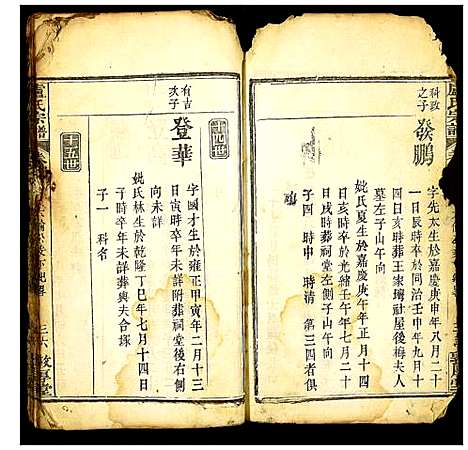 盧氏宗譜
十四世
科政
之子
發鵬
字先太生於嘉慶庚申年八月二十
一日辰時卒於同治壬申年九月十
四日亥時葬王家塆社屋後梅夫人
墓左子山午向
妣氏夏生於嘉慶庚午年正月十四
日亥時卒於光緒壬午年七月二十
日戌時葬祠堂左側子山午向
子四 時中 時演 三四者俱
殤
有吉
次子
登華
字國才生於雍正甲寅年二月十三
日寅時卒年未詳附葬祠堂後右側
向未詳
妣氏林生於乾隆丁巳年七月十四日
子時卒年未詳葬與夫合塚
子一 科名
十五世
盧氏宗譜
三六
敦厚堂